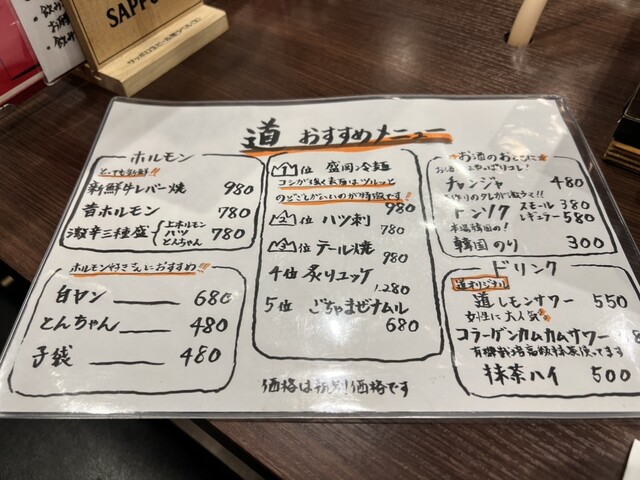 SAPPO
道 おすすめメニュー
ホルモン
とっても新鮮!!
新鮮牛レバー焼 980
昔ホルモン 780
激辛三種盛 上ホルモン ハツ とんちゃん 780
ホルモン好きさんにおすすめ!!!
白ヤン 680
とんちゃん 480
子袋 480
1位 盛岡冷麺
コシが強く表面はツルッと
のどごしがいいのが特徴です!
980
2位 ハツ刺
780
3位 テール焼
980
4位 炙りユッケ
1,280
5位 ごちゃまぜナムル
680
価格は税別価格です
お酒のおともに
チャンジャ 480
スモール 380
レギュラー 580
本場韓国の!
韓国のり 300
ドリンク
道オリジナル
道レモンサワー 550
女性に大人気
コラーゲンカムカムサワー
有機栽培高級抹茶使ってます
抹茶ハイ 500